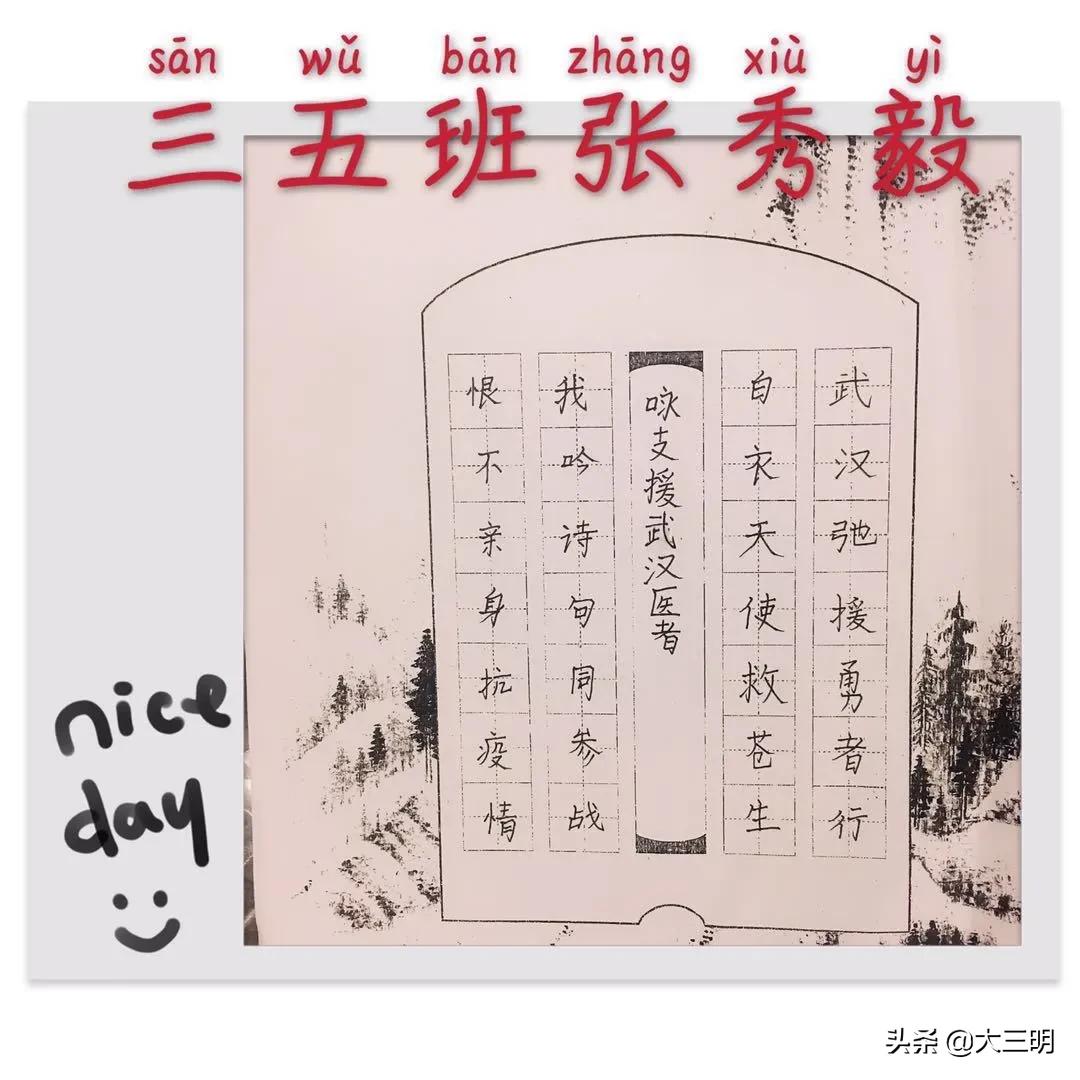 sān wǔ bān zhāng xiù yì
三五班张秀毅
武汉弛援勇者行
白衣天使救苍生
咏支援武汉医者
我吟诗句同参战
恨不亲身抗疫情
nice
day
头条 @大三明